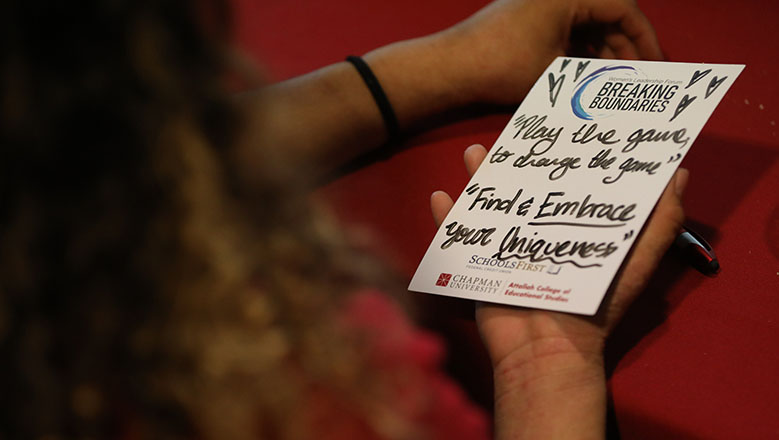 Women's Leadership Forum
BREAKING
BOUNDARIES
"Play the game,
to change the game"
"Find & Embrace
your Uniqueness"
SCHOOLSFIRST
FEDERAL CREDIT UNION
CHAPMAN
UNIVERSITY
Attallah College of
Educational Studies